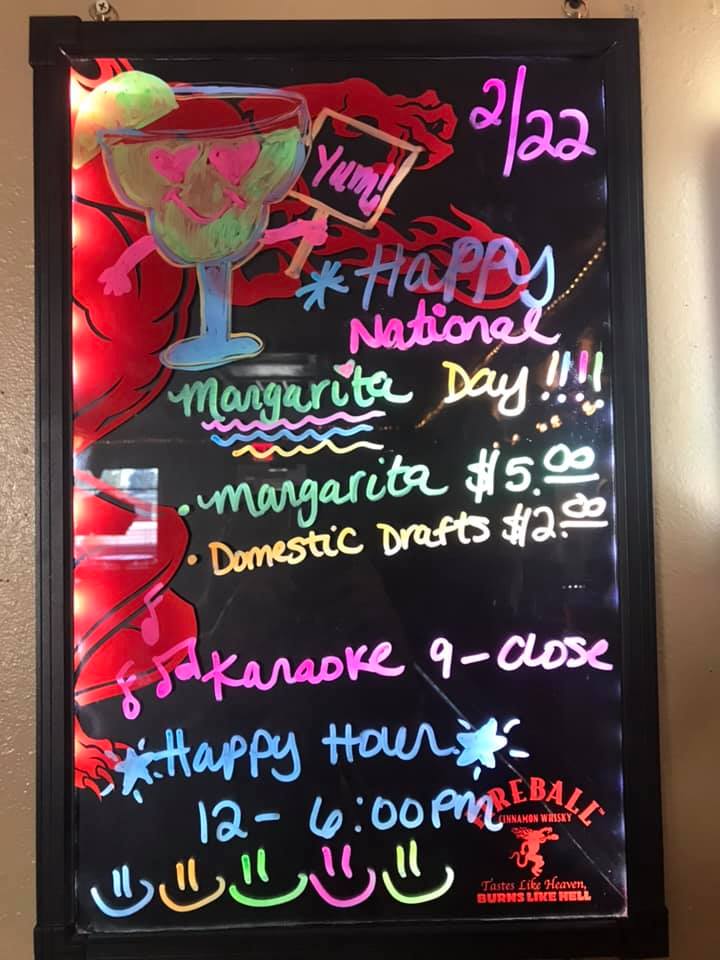 2/22
Yum!
*Happy
National
Margarita Day!!!!
• Margarita $5.00
• Domestic Drafts $2.00
Karaoke 9-Close
Happy Hour
12-6:00pm
FIREBALL
CINNAMON WHISKY
Tastes Like Heaven,
BURNS LIKE HELL